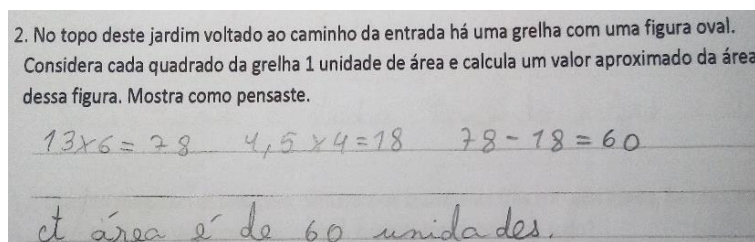 2. No topo deste jardim voltado ao caminho da entrada há uma grelha com uma figura oval.
Considera cada quadrado da grelha 1 unidade de área e calcula um valor aproximado da área
dessa figura. Mostra como pensaste.
13x6=78 4,5x4=18 78-18=60
A área é de 60 unidades.